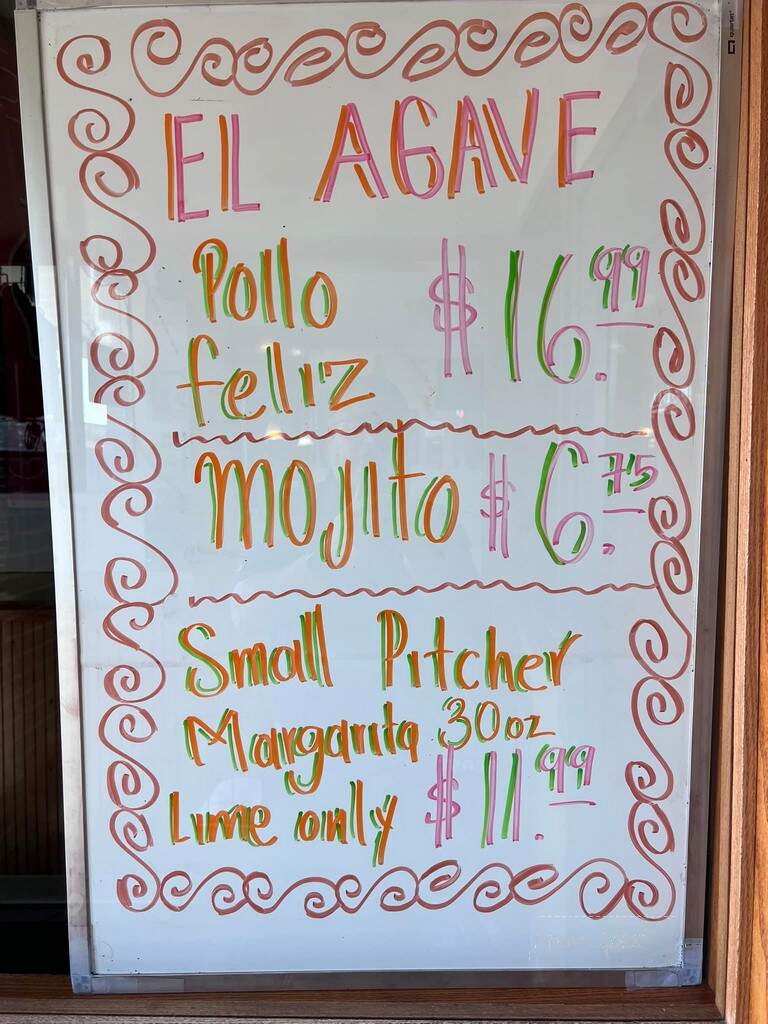 quartet
EL AGAVE
Pollo $16.99
feliz
mojito $6.75
Small Pitcher
Margarita 30oz
Lime only $11.99